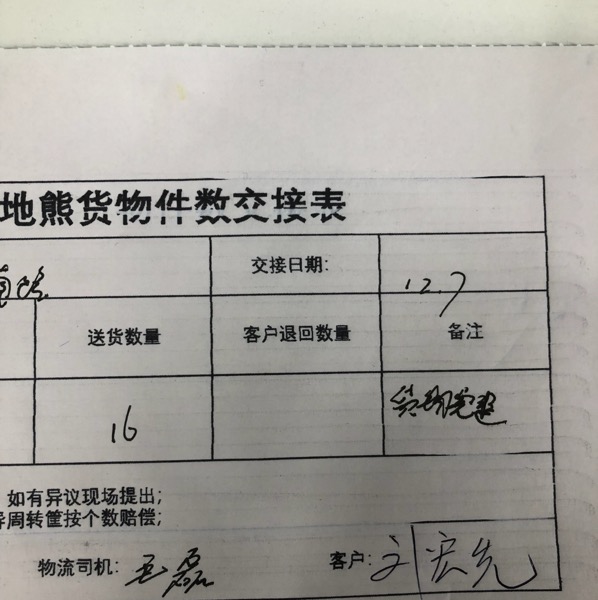 地熊货物件数交接表
交接日期: 12.7
送货数量 客户退回数量 备注
16
如有异议现场提出;
周转筐按个数赔偿;
物流司机: 王磊 客户: 刘宏先